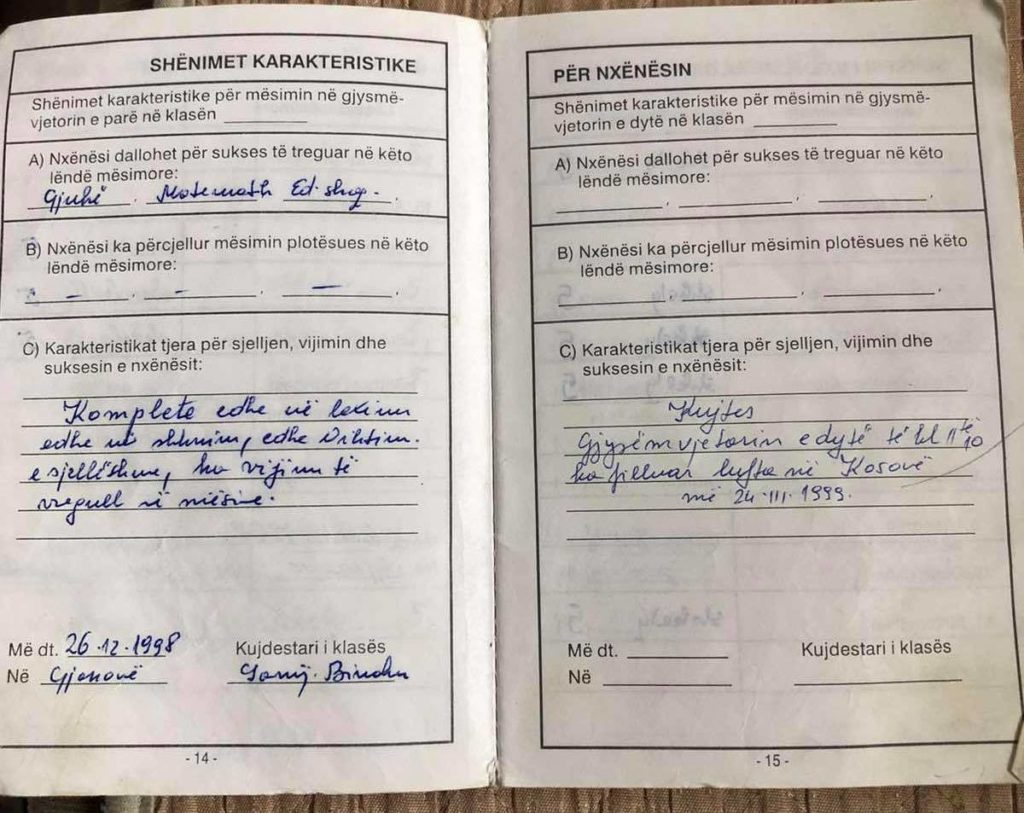 SHËNIMET KARAKTERISTIKE
Shënimet karakteristike për mësimin në gjysmë-
vjetorin e parë në klasën
A) Nxënësi dallohet për sukses të treguar në këto
lëndë mësimore:
Gjuhë, Matemath Ed. shoq.
B) Nxënësi ka përcjellur mësimin plotësues në këto
lëndë mësimore:
- , - , - .
C) Karakteristikat tjera për sjelljen, vijimin dhe
suksesin e nxënësit:
Komplete edhe në lexim
edhe në shkrim, edhe
e sjellëshme, ka vijim të
rregull në mësime.
Më dt. 26.12.1998
Kujdestari i klasës
Në
- 14 -
PËR NXËNËSIN
Shënimet karakteristike për mësimin në gjysmë-
vjetorin e dytë në klasën
A) Nxënësi dallohet për sukses të treguar në këto
lëndë mësimore:
B) Nxënësi ka përcjellur mësimin plotësues në këto
lëndë mësimore:
C) Karakteristikat tjera për sjelljen, vijimin dhe
suksesin e nxënësit:
Kujtes
Gjysëm vjetorin e dytë të kl II të
ka filluar lufta në Kosovë
më 24.III.1999.
Më dt.
Kujdestari i klasës
Në
- 15 -